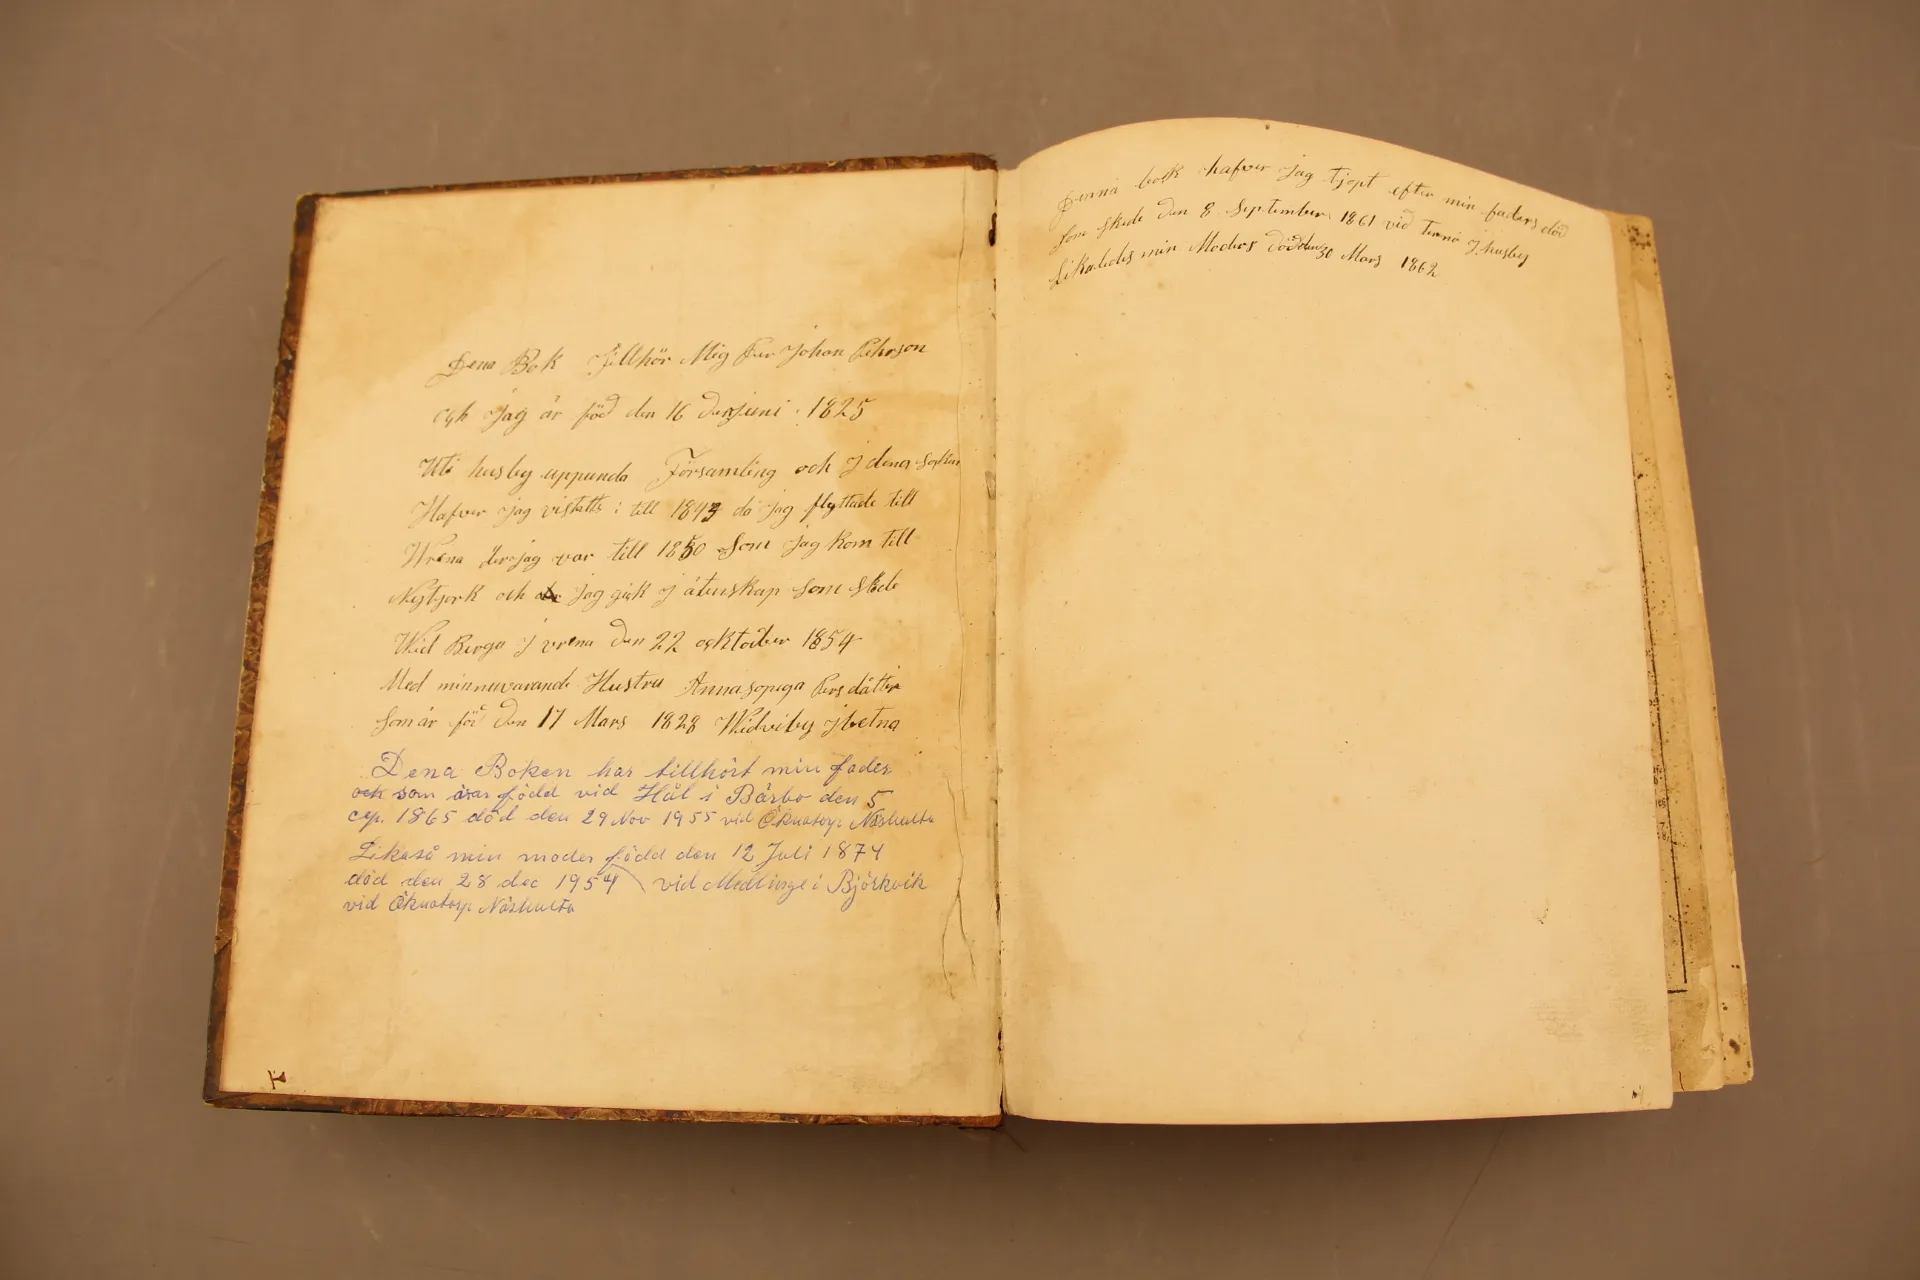 Dena Bok Tillhör Mig Per Johan Pehrson
och jag är föd den 16 den juni 1825
Uti husby uppunda Församling och j dena sokn
Hafver jag vistatts i till 1843 då jag flyttade till
Wrena der jag var till 1850 Som jag kom till
Nytjork och jag gick j äktenskap som skede
Wid Berga j vrena den 22 ocktober 1854
Med minnuvarande Hustru Anna sopiga Pers dåtter
som är föd den 17 Mars 1828 Widviby j betna
Dena Boken har tillhört min fader
och som var född vid Hål i Bärbo den 5
sep. 1865 död den 29 Nov 1955 vid Öknatorp Näshulta
Likaså min moder född den 12 Juli 1874
död den 28 dec 1954 vid Medlinge i Björkvik
vid Öknatorp Näshulta
Denna bok hafver jag tjopt efter min faders död
som skede den 8 September 1861 vid tenna j husby
Likaledes min Moders död den 30 Mars 1862